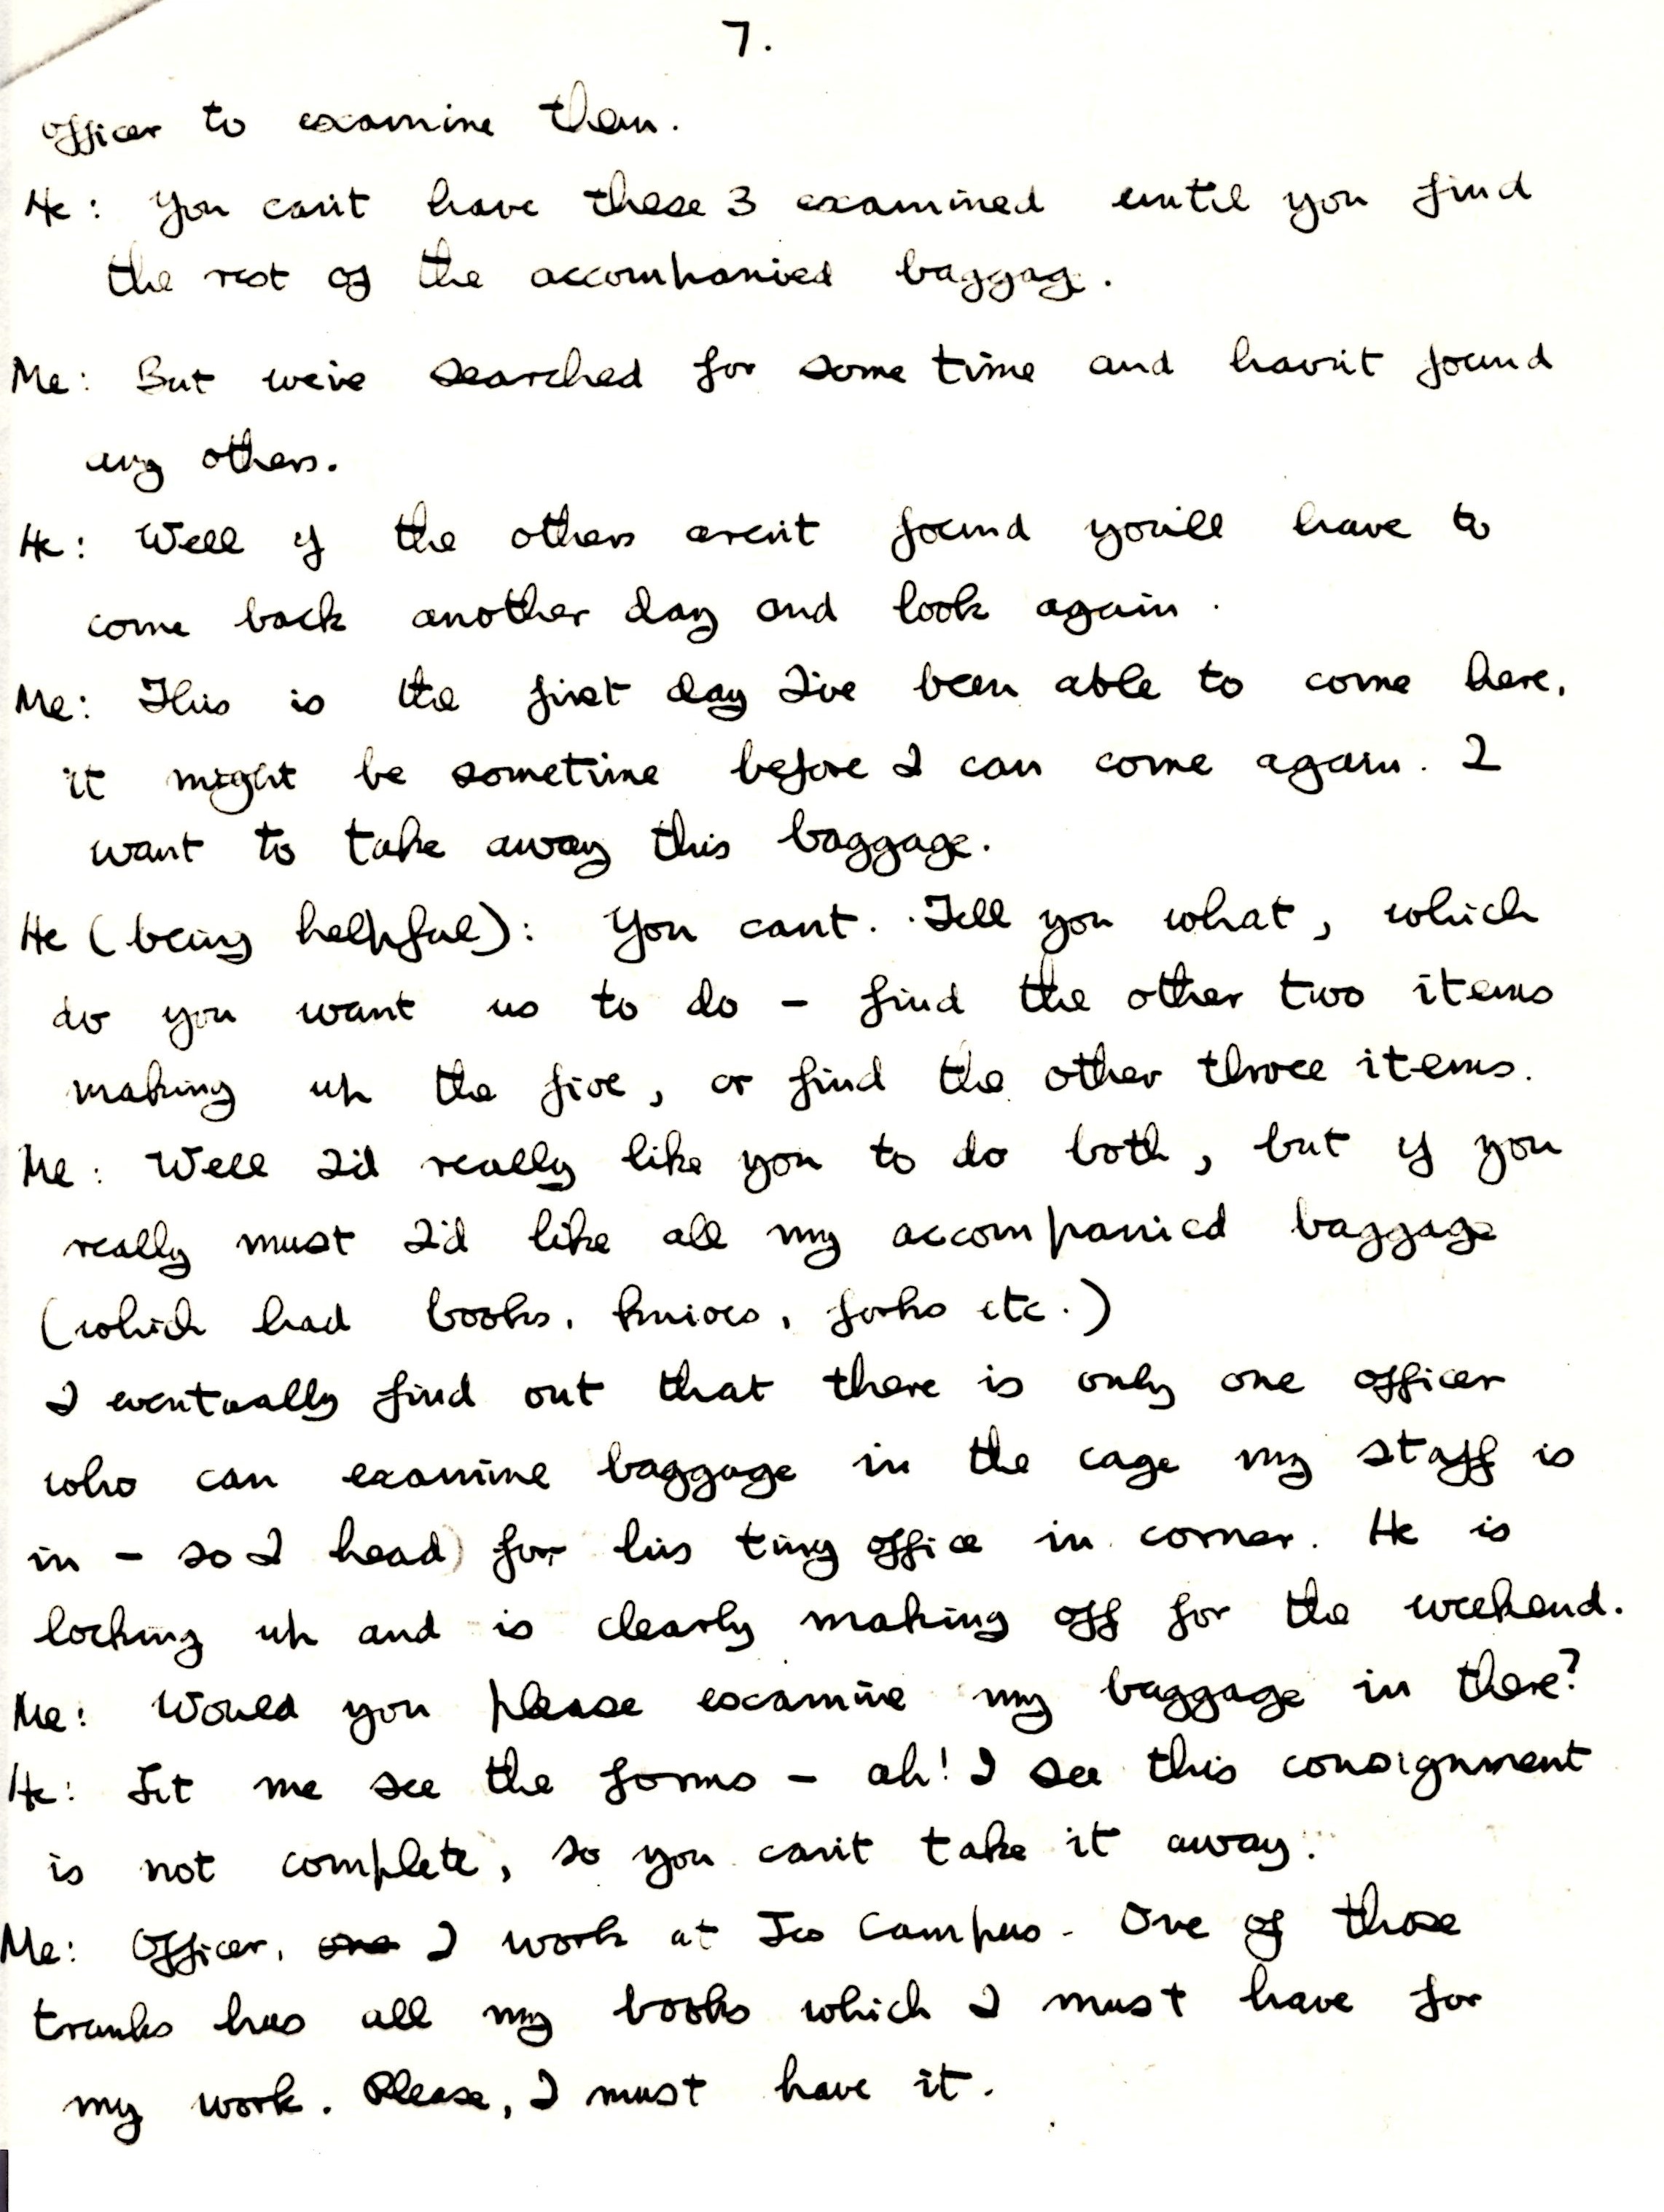 7.
officer to examine them.
He: You can't have these 3 examined until you find
the rest of the accompanied baggage.
Me: But we've searched for some time and havn't found
any others.
He: Well if the others aren't found you'll have to
come back another day and look again.
Me: This is the first day I've been able to come here,
it might be sometime before I can come again. I
want to take away this baggage.
He (being helpful): You can't. Tell you what, which
do you want us to do - find the other two items
making up the five, or find the other three items.
Me: Well I'd really like you to do both, but if you
really must I'd like all my accompanied baggage
(which had books, knives, forks etc.)
I eventually find out that there is only one officer
who can examine baggage in the cage my staff is
in - so I head for his tiny office in corner. He is
locking up and is clearly making off for the weekend.
Me: Would you please examine my baggage in there?
He: Let me see the forms - ah! I see this consignment
is not complete, so you can't take it away.
Me: Officer, one I work at Jos Campus. One of those
trunks has all my books which I must have for
my work. Please, I must have it.